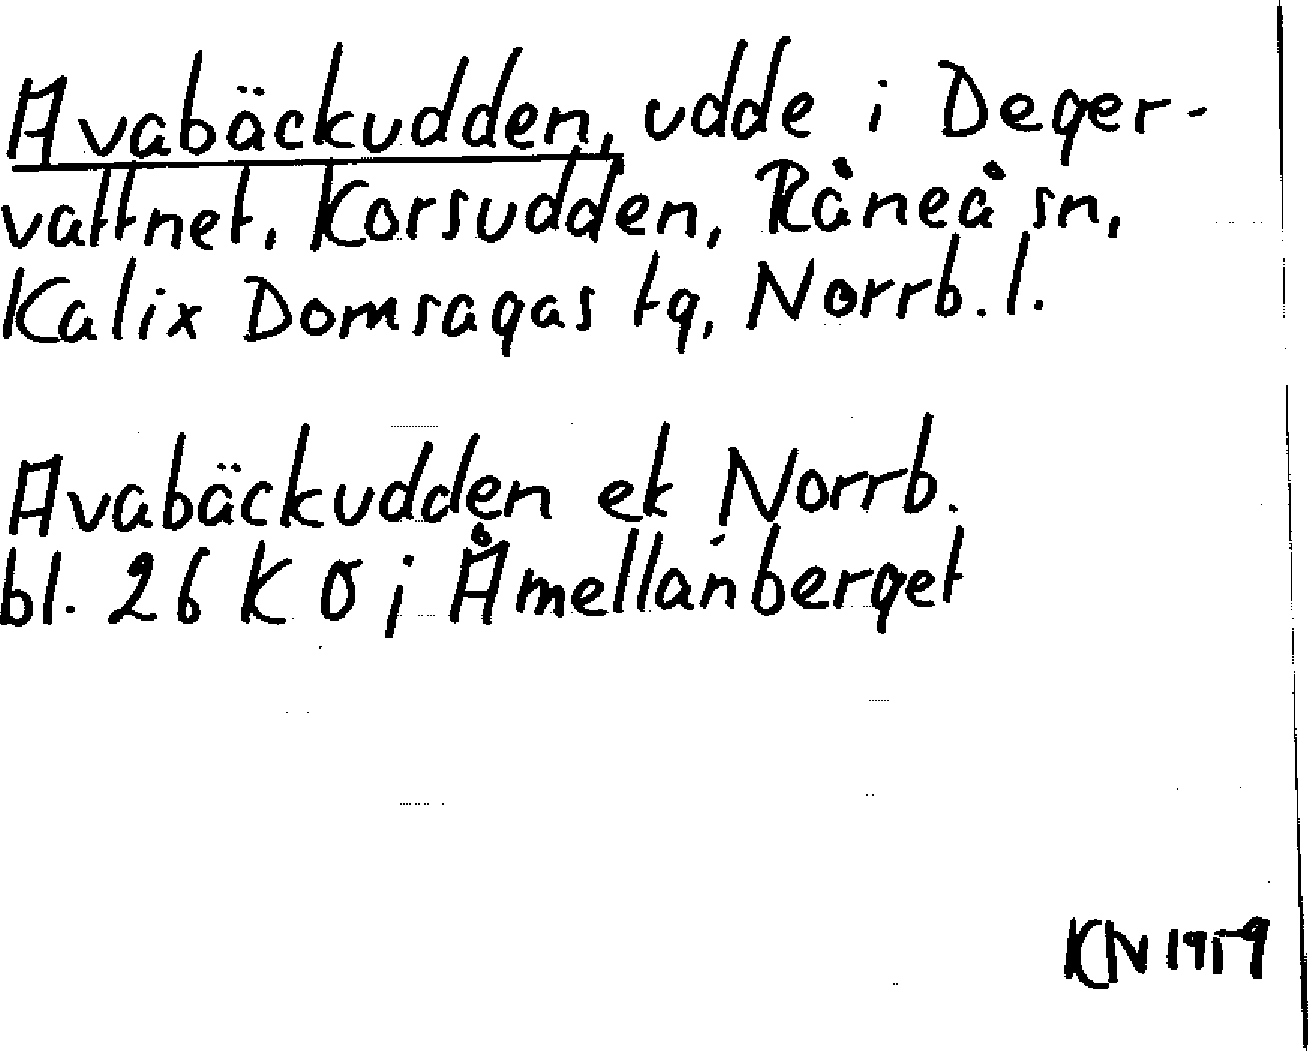 Avabäckudden, udde i Deger-
vattnet, Korsudden, Råneå sn,
Kalix Domsagas tg, Norrb. l.
Avabäckudden ek Norrb.
bl. 26 K O j Åmellanberget
KN 1959